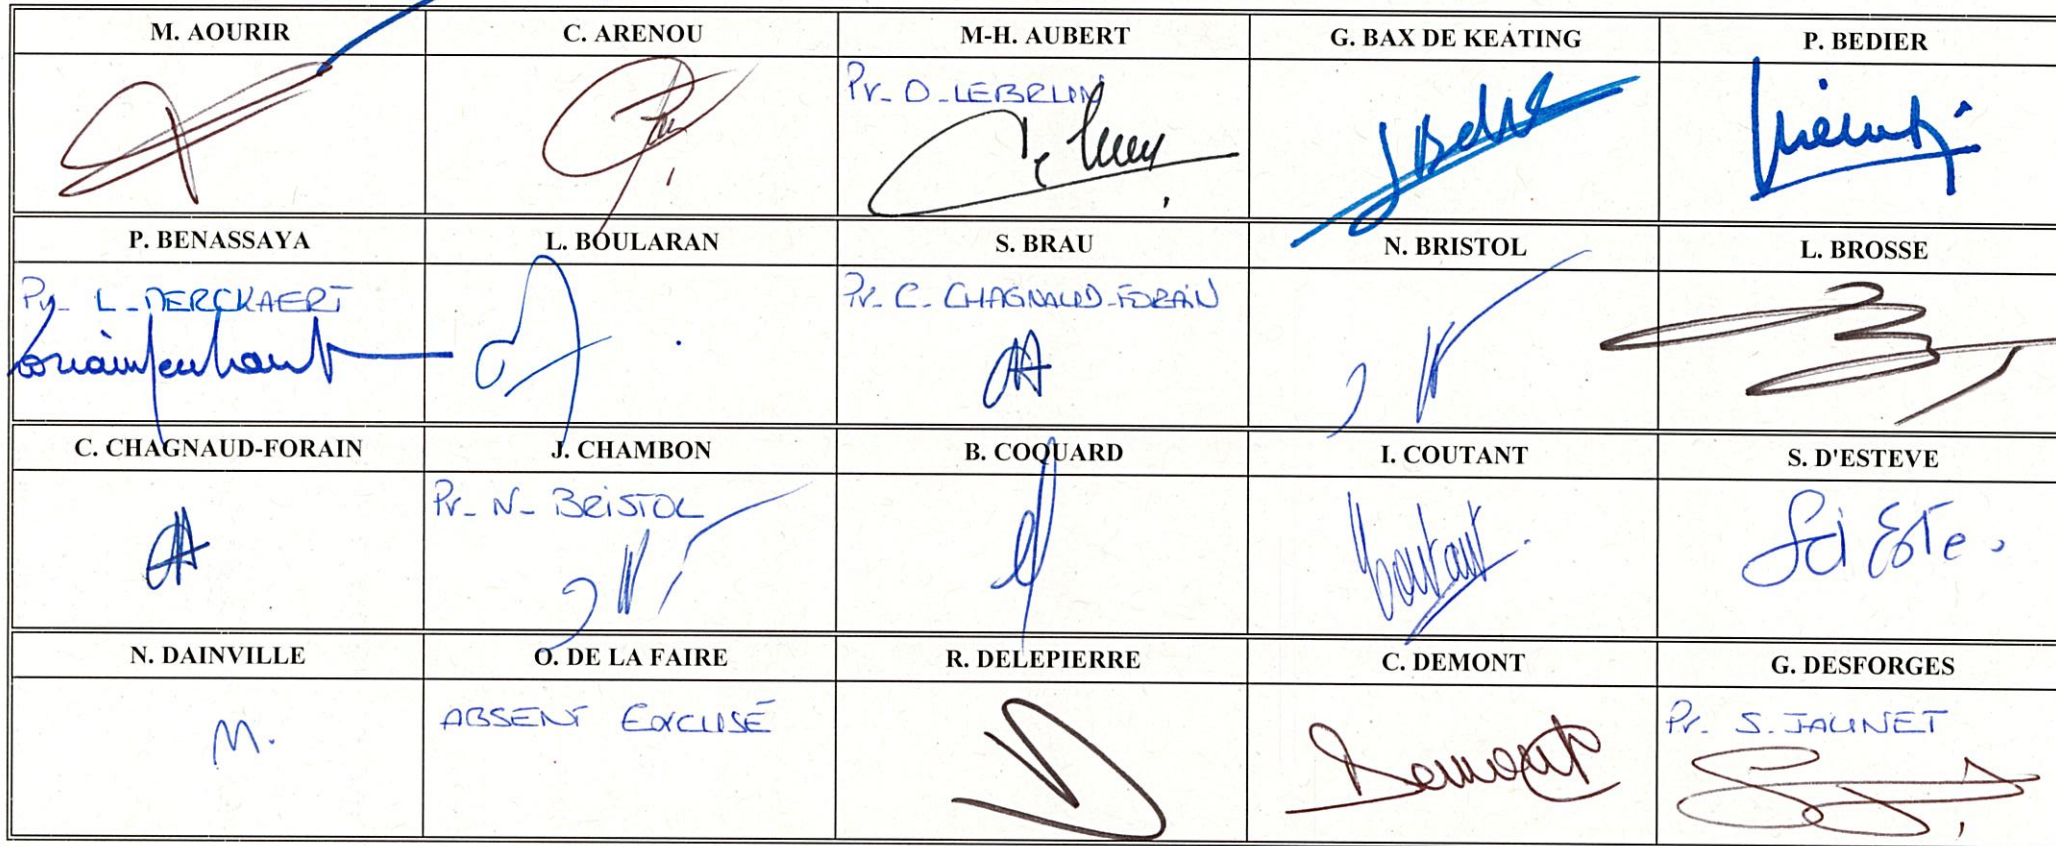 M. AOURIR C. ARENOU M-H. AUBERT G. BAX DE KEATING P. BEDIER
Pr_ O_LEBRUN
P. BENASSAYA L. BOULARAN S. BRAU N. BRISTOL L. BROSSE
Pr_ L_MERCKAERT Pr_ C_ CHAGNAUD-FORAIN
C. CHAGNAUD-FORAIN J. CHAMBON B. COQUARD I. COUTANT S. D'ESTEVE
Pr_ N_ BRISTOL
Coutant
N. DAINVILLE O. DE LA FAIRE R. DELEPIERRE C. DEMONT G. DESFORGES
ABSENT EXCUSÉ Pr. S. JAUNET
M. Demont